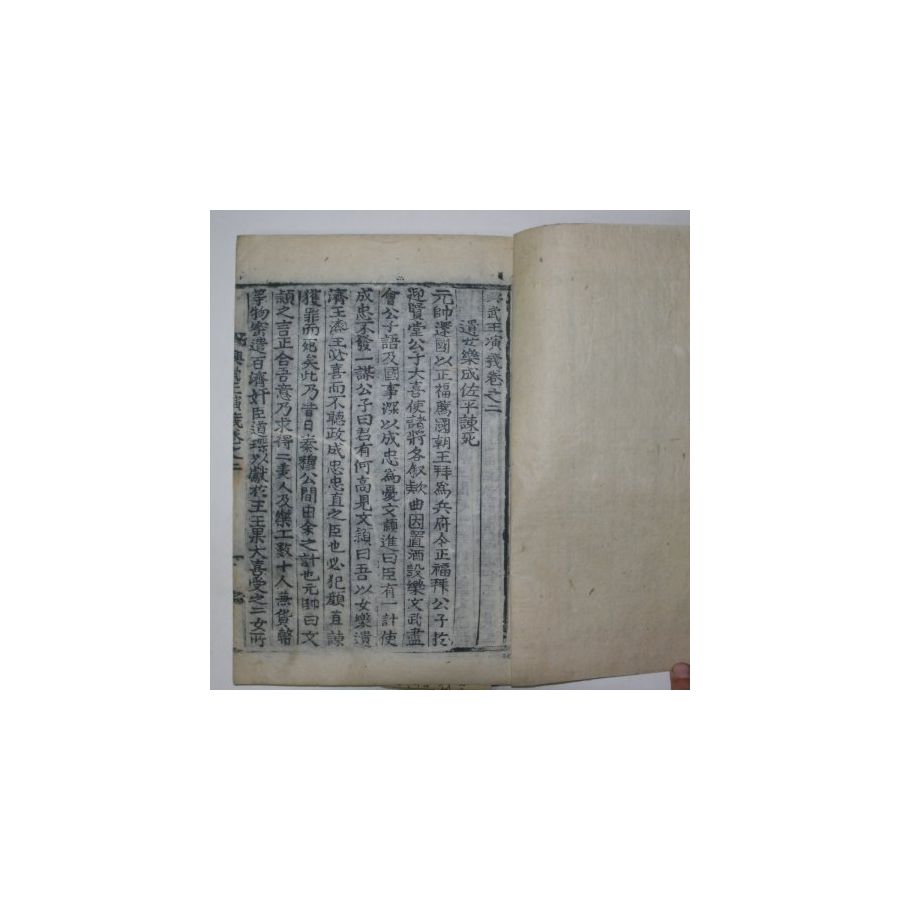 武王演義卷之二
還女樂成佐平諫死
元帥還國以正福薦國朝王拜爲兵府令正福拜公子於
迎賢堂公子大喜使諸將各叙款曲因置酒設樂文武盡
會公子語及國事深以成忠為憂文頴進曰臣有一計使
成忠不發一謀公子曰君有何高見文頴曰吾以女樂遺
濟王濟王必喜而不聽政成忠忠直之臣也必犯顔直諫
獲罪而死矣此乃昔日秦穆公間由余之計也元帥曰文
頴之言正合吾意乃求得二美人及樂工數十人兼貨賂
等物密遣百濟奸臣道琛以獻於王王果大喜愛之二女所
興武王演義卷之二